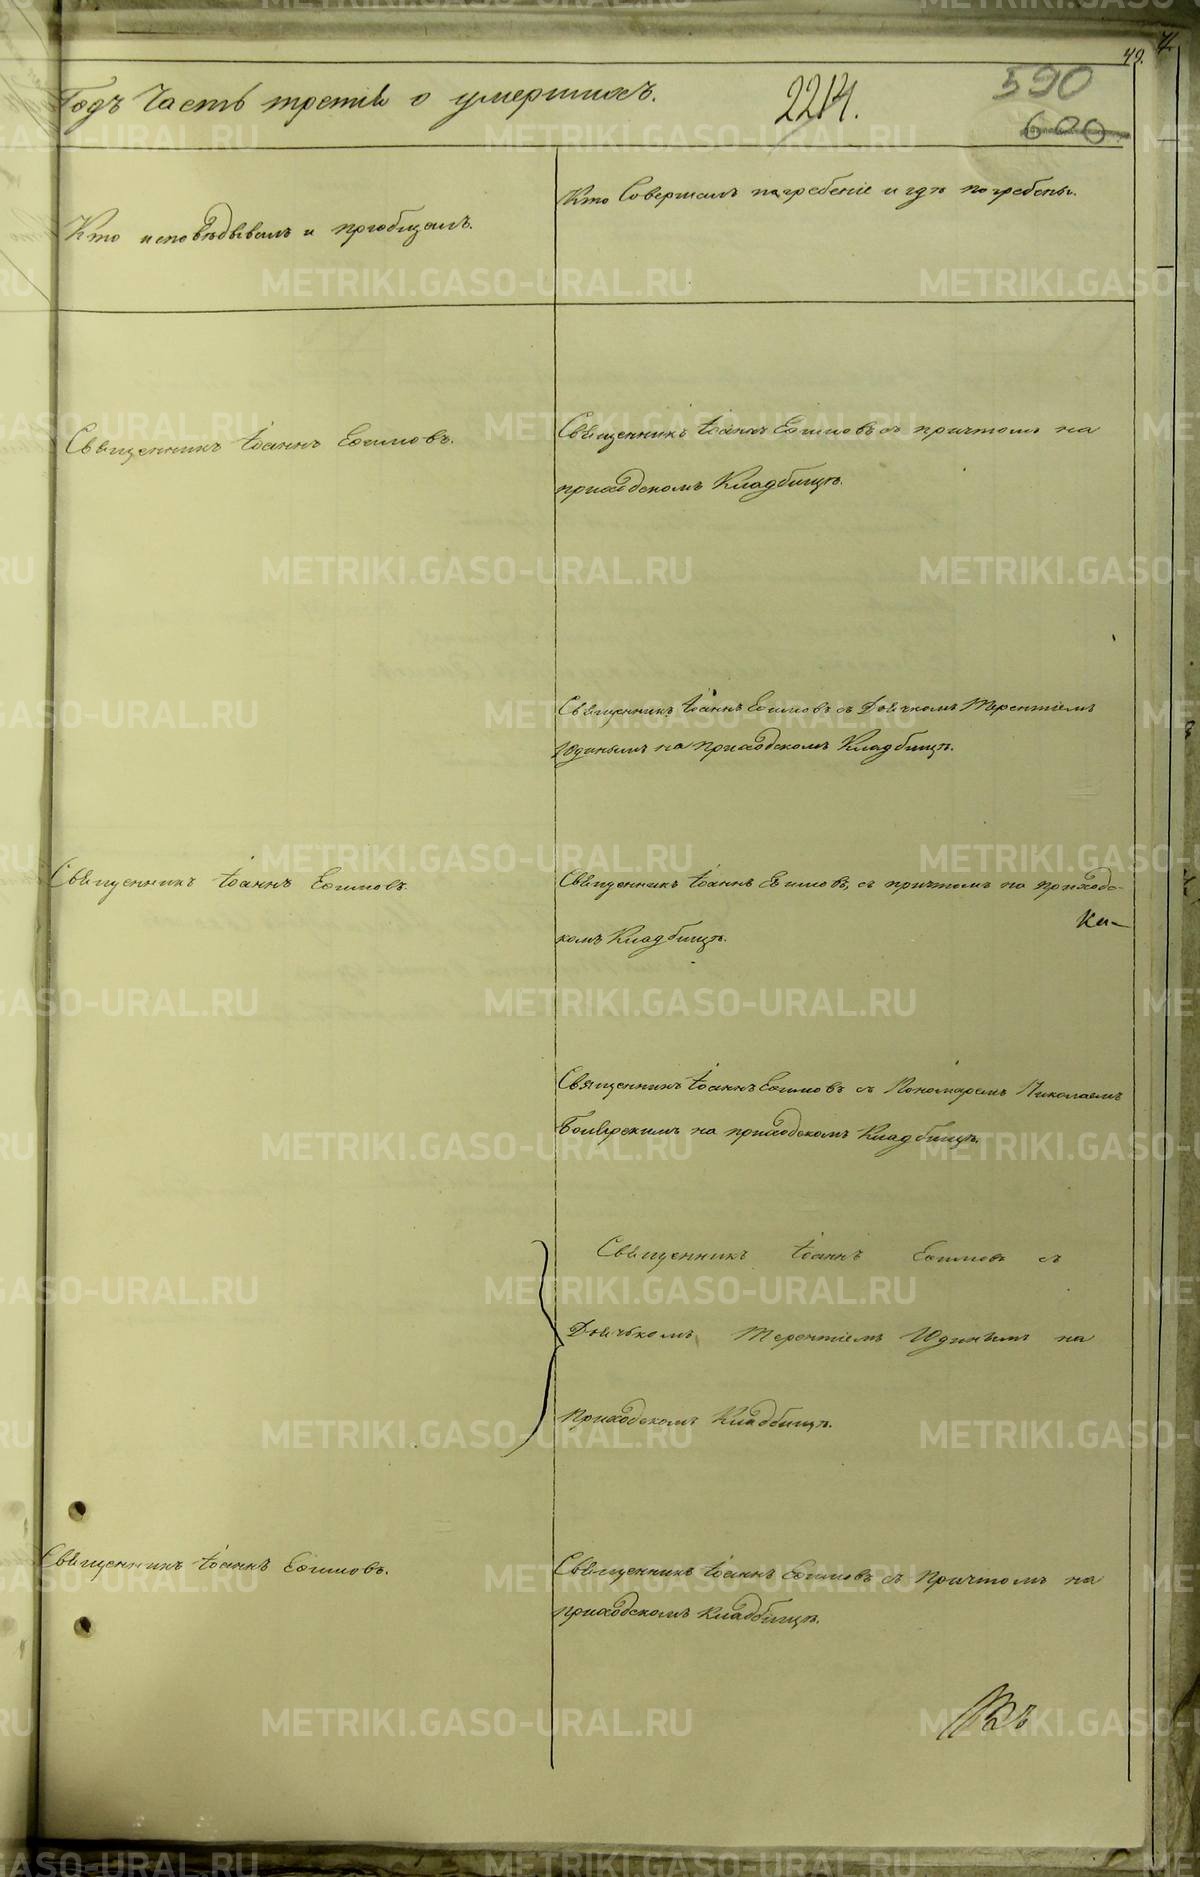 49.
590
600
2214.
Годъ Часть третія о умершихъ.
Кто исповѣдывалъ и пріобщалъ.
Кто Совершалъ погребеніе и гдѣ погребены.
Священникъ Іоаннъ Ефимовъ.
Священникъ Іоаннъ Ефимовъ съ причтомъ на
приходскомъ Кладбищѣ.
Священникъ Іоаннъ Ефимовъ съ Дьячкомъ Терентіемъ
Юдинымъ на приходскомъ Кладбищѣ.
Священникъ Іоаннъ Ефимовъ
Священникъ Іоаннъ Ефимовъ, съ причтомъ на приходс-
комъ Кладбищѣ.
Священникъ Іоаннъ Ефимовъ съ Пономаремъ Николаемъ
Боярскимъ на приходскомъ Кладбищѣ.
Священникъ Іоаннъ Ефимовъ съ
Дьячкомъ Терентіемъ Юдинымъ на
Приходскомъ Кладбищѣ.
Священникъ Іоаннъ Ефимовъ.
Священникъ Іоаннъ Ефимовъ съ Причтомъ на
приходскомъ кладбищѣ.
METRIKI.GASO-URAL.RU